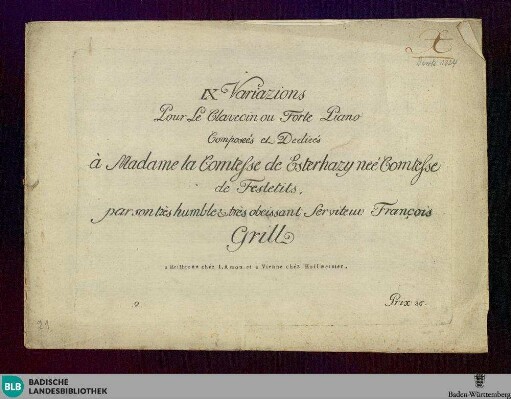 IX Variazions
Pour Le Clavecin ou Forte Piano
Composées et Dediées
à Madame la Comtesse de Esterhazy neé Comtesse
de Festetits,
par son très humble & très obeissant Serviteur François
Grill
a Heilbronn chez I. Aman. et a Vienne chez Hoffmeister.
9
Prix 36.
29
BLB
BADISCHE
LANDESBIBLIOTHEK
Baden-Württemberg